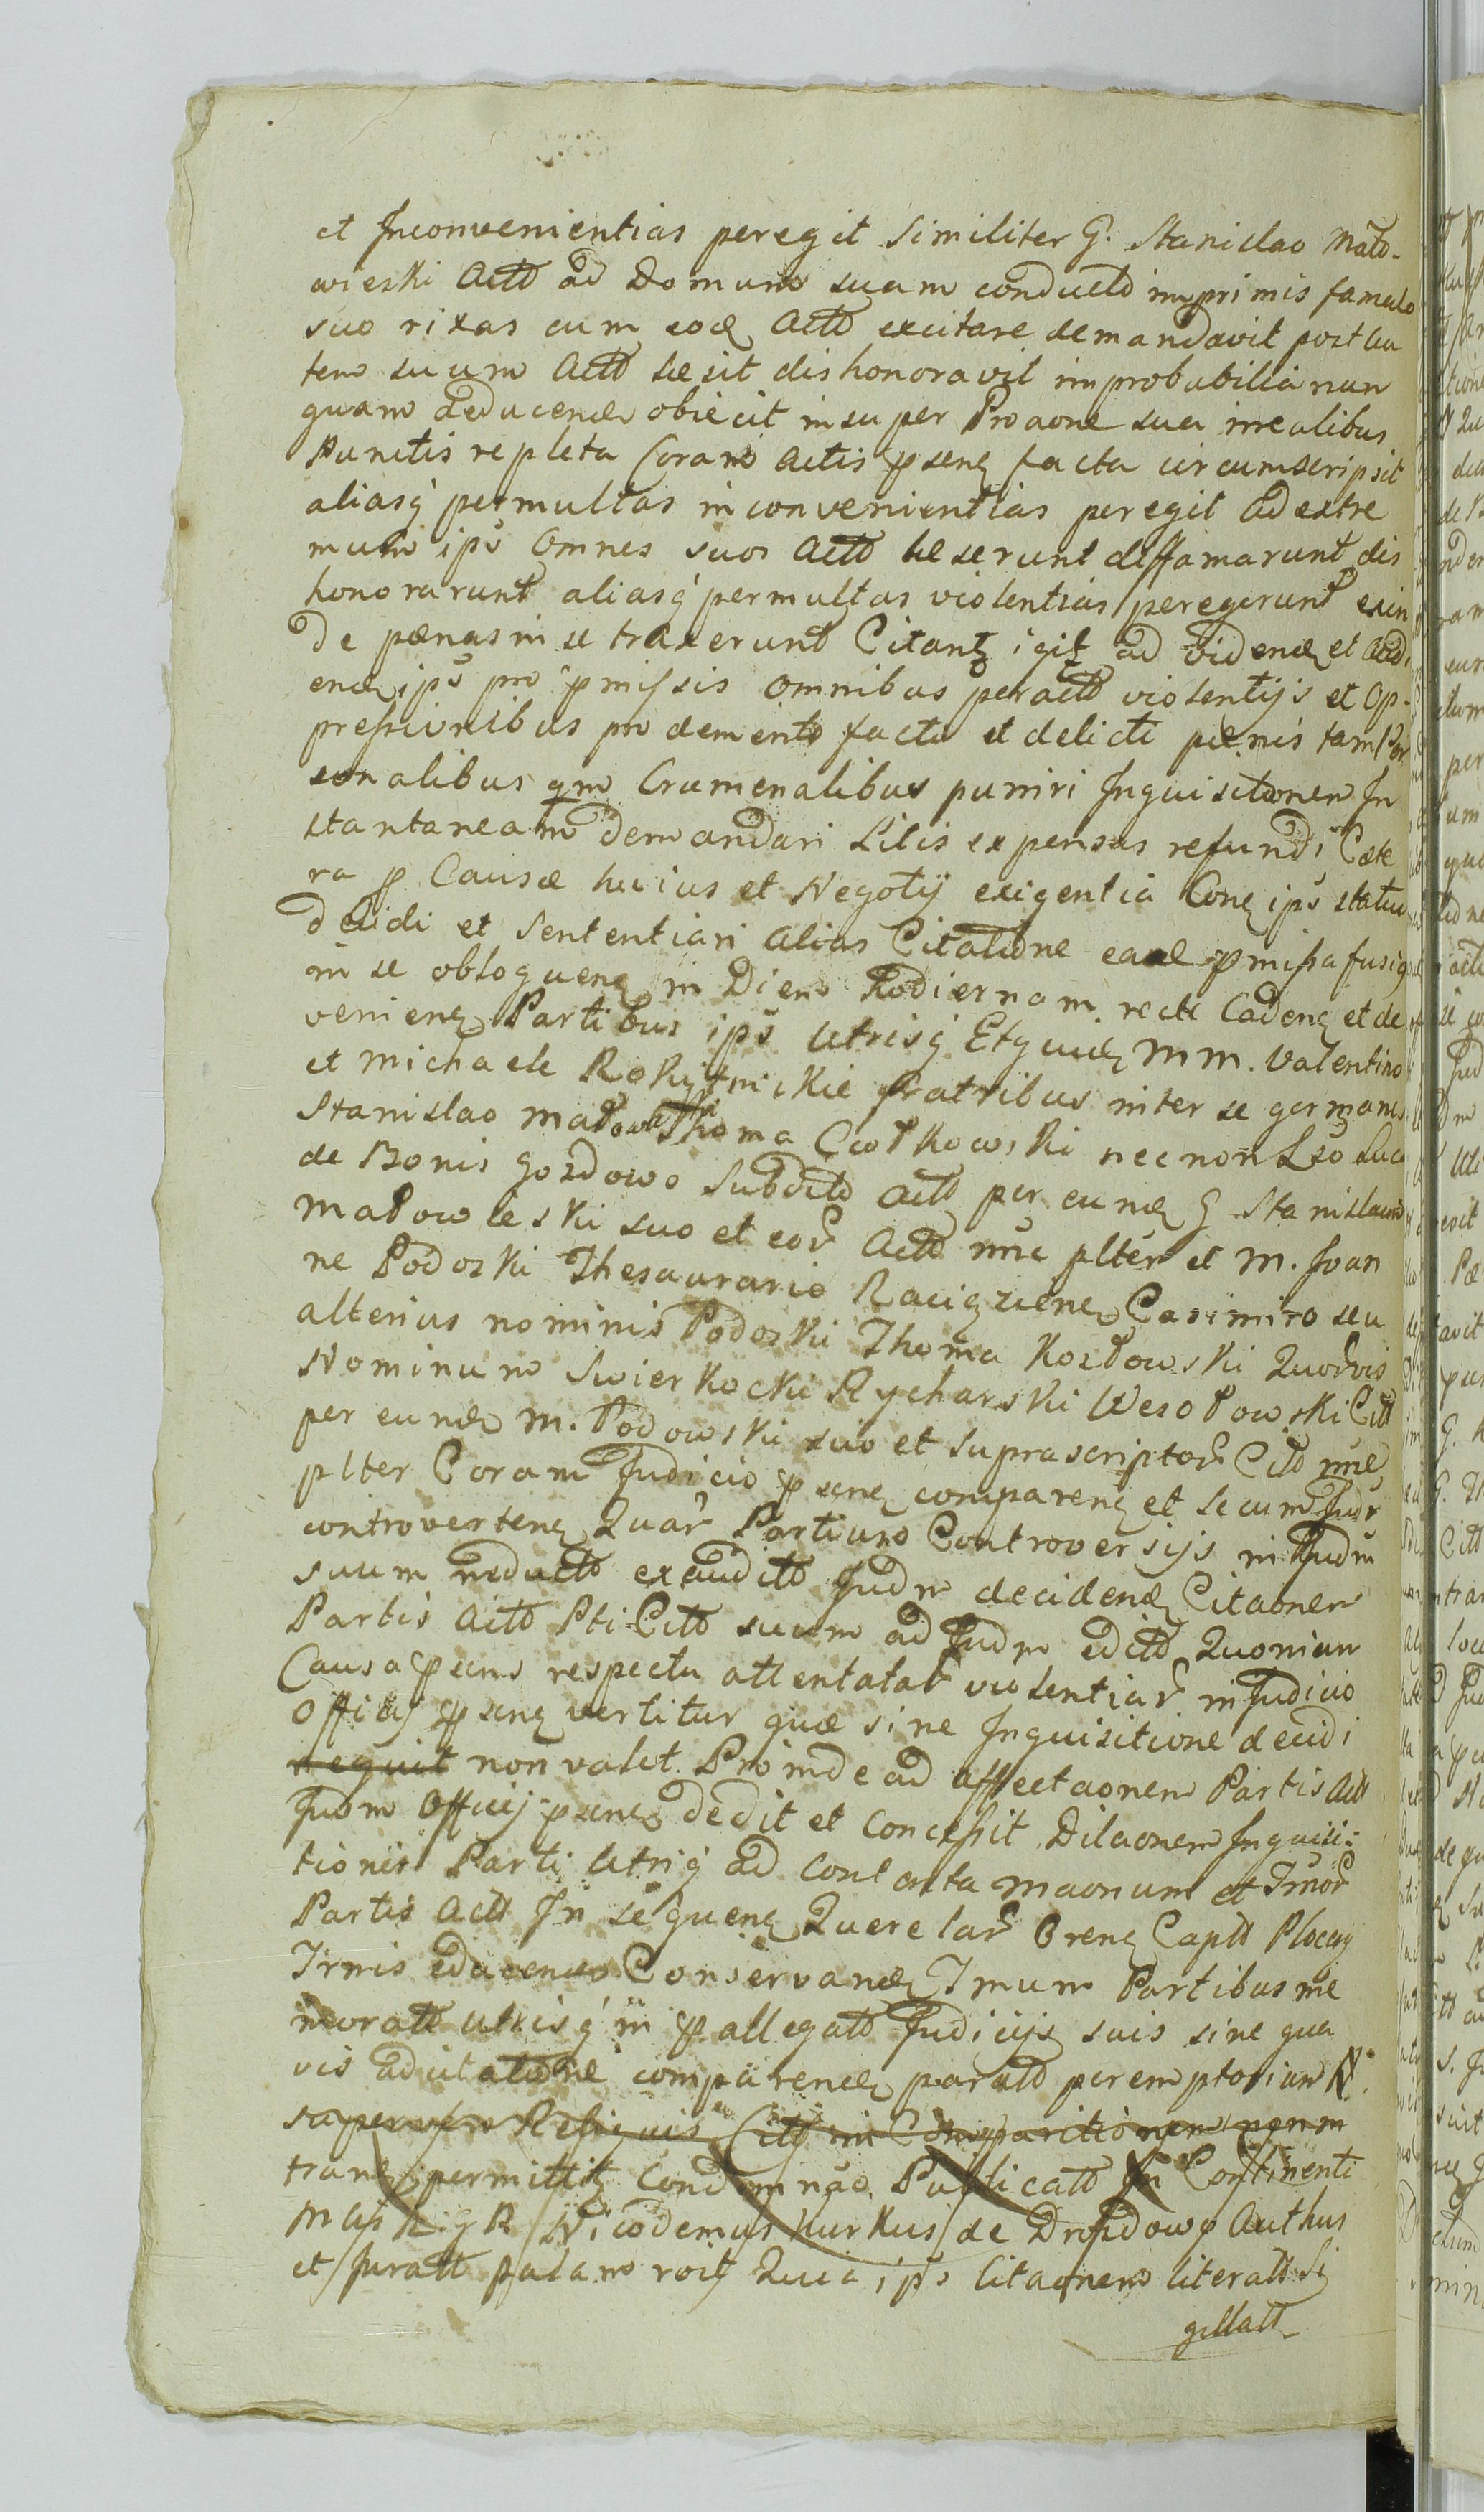 et Inconvenientias peregit Similiter G. Stanislao Mało-
wieski Actto ad Domum suam conducto imprimis famulo
suo rixas cum eode Actto excitare demandavit post au
tem suum Actto læsit dishonoravit improbabilia nun
quam deducenda obiecit insuper Proaone sua irrealibus
Punctis repleta Coram Actis psenq facta circumscripsit
aliasq permultas inconvenientias peregit ad extre
mum ips Omnes suos Actto læserunt diffamarunt dis
honorarunt aliasq permultas violentias peregerunt exin
de pœnas in se traxerunt Citant igit ad videnđ et Audi
enđ ips pro pmissis omnibus peractto violentijs et Op-
pressionibus pro demerito facti et delicti pœnis tam Per
sonalibus qm Crumenalibus puniri Inquisitionem In
stantaneam demandari Litis expensas refundi Cæte
ra p Causæ huius et Negotij exigentia Conq ips statui
decidi et Sententiari alias Citatione eade pmissa fusiq
in se obloquenq in Diem hodiernam recte Cadenq et de
venienq Partibus ips Utrisq Etquidq MM. Valentino
et Michaele Rokitnickie fratribus inter se germanis
Stanislao Małowieski Thoma Cwotkowski necnon Lso Luca
de Bonis Gozdowo Subdito Actto per eundq G Stanislaum
Małowieski suo et eor Actto nne plter et M. Joan
ne Podoski Thesaurario Raciązienq Casimiro seu
alterius nominis Podoski Thoma Kozłowski Quorvis
Nominum Swierkocki Rycharski Wesołowski Citt
per eundq M. Podowski suo et suprascriptor Citt nne
plter Coram Judicio psenq comparenq et secum Judr
controvertenq Quar Partium Controversijs in Judm
suum inductto exauditto Judm decidendq Citaonem
Partis Actto Pti Citt suum ad Judm editto Quoniam
Causa psens respectu attentatar violentiar in Judicio
Officij psenq vertitur quæ sine Inquisitione decidi
nequit non valet. Proinde ad affectaonem Partis Actt
Judm Officij psenq dedit et Concessit Dilaonem Inquisi-
tionis Parti Utriq ad Contenta Maonum et Tmor
Partis Actt In sequenq Querelar Grenq Captt Plocen
Trmis educenq Conservandq Tmum Partibus me
moratt utrisq in pallegatt Judicijs suis sine qua
vis adcitatione comparendq paratto peremptorium N.
super vero Reliquis Citt in Comparitionem non in
tranq permittit Condemnao. Publicatt In Continenti
Nicodemus Kurkus de Drozdowo Authus
et Juratt palam roit Quia ips Citaonem literatt Si
gillatt